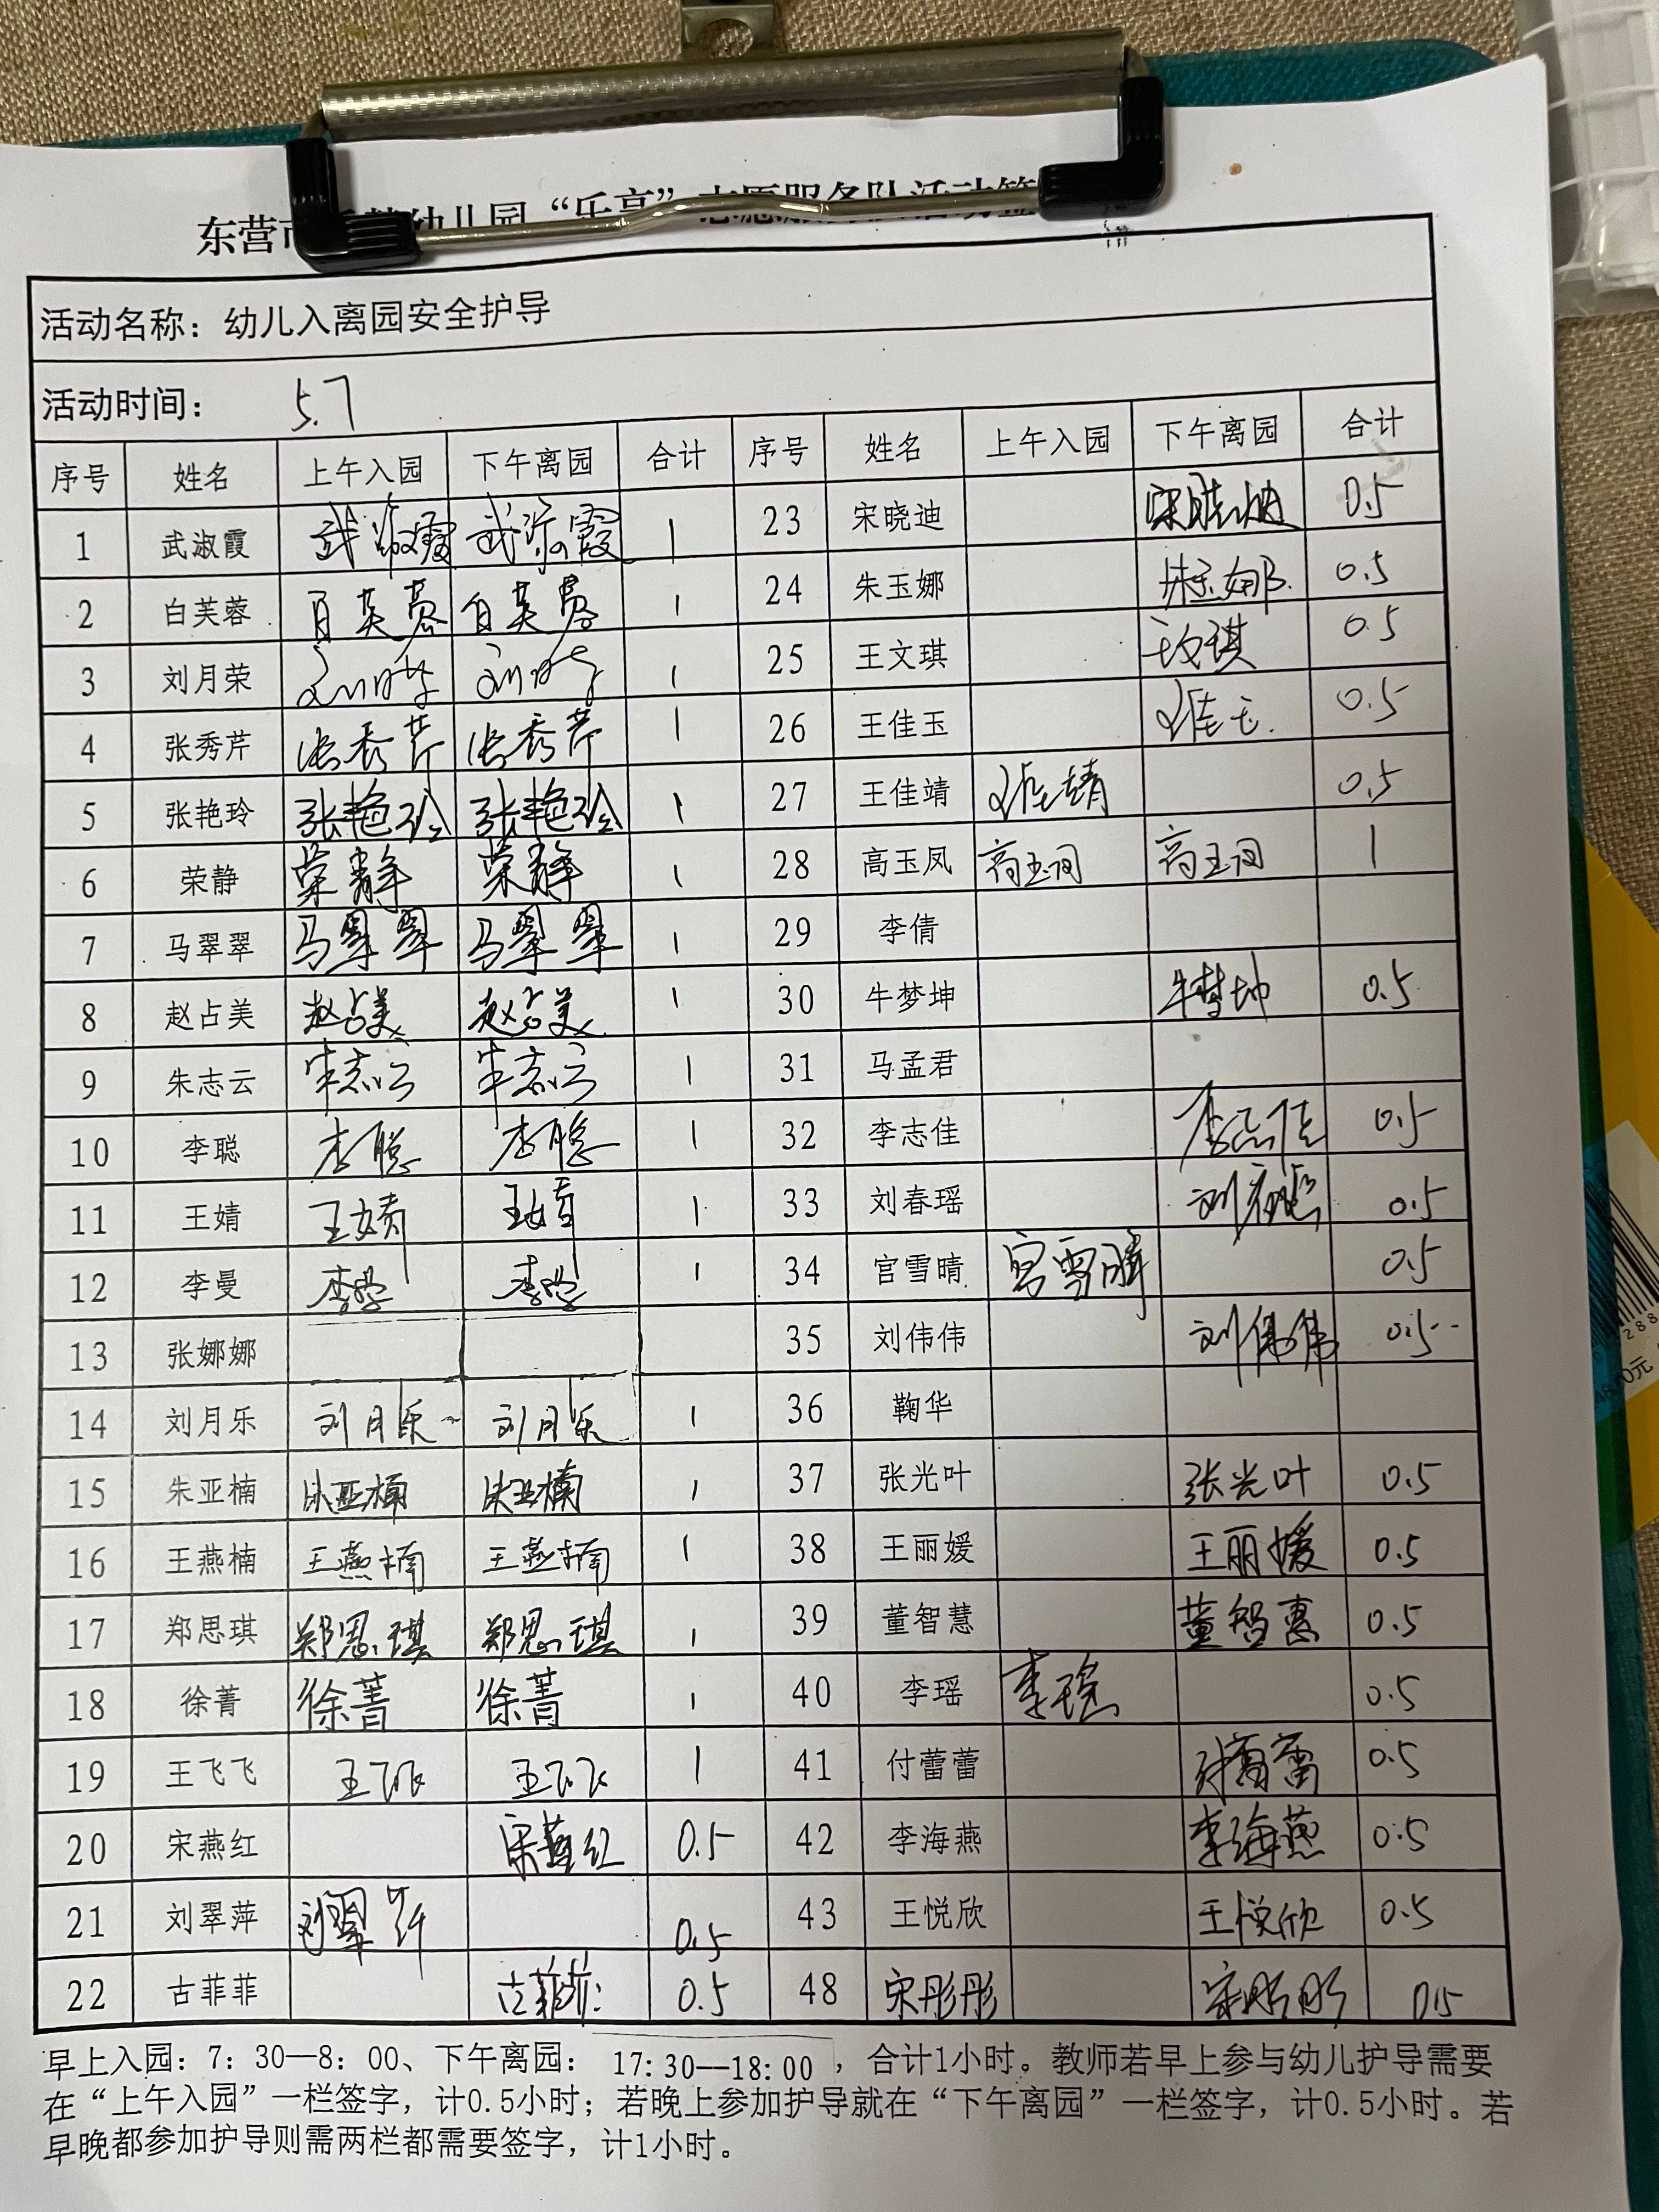 东营市 幼儿园“乐享”志愿服务队活动签
活动名称：幼儿入离园安全护导
活动时间： 5.7
序号 姓名 上午入园 下午离园 合计 序号 姓名 上午入园 下午离园 合计
1 武淑霞 武淑霞 武淑霞 1 23 宋晓迪 宋晓迪 0.5
2 白芙蓉 白芙蓉 白芙蓉 1 24 朱玉娜 朱玉娜 0.5
3 刘月荣 刘月荣 刘月荣 1 25 王文琪 王文琪 0.5
4 张秀芹 张秀芹 张秀芹 1 26 王佳玉 王佳玉 0.5
5 张艳玲 张艳玲 张艳玲 1 27 王佳靖 王佳靖 0.5
6 荣静 荣静 荣静 1 28 高玉凤 高玉凤 高玉凤 1
7 马翠翠 马翠翠 马翠翠 1 29 李倩
8 赵占美 赵占美 赵占美 1 30 牛梦坤 牛梦坤 0.5
9 朱志云 朱志云 朱志云 1 31 马孟君
10 李聪 李聪 李聪 1 32 李志佳 李志佳 0.5
11 王婧 王婧 王婧 1 33 刘春瑶 刘春瑶 0.5
12 李曼 李曼 李曼 1 34 宫雪晴 宫雪晴 0.5
13 张娜娜 35 刘伟伟 刘伟伟 0.5
14 刘月乐 刘月乐 刘月乐 1 36 鞠华
15 朱亚楠 朱亚楠 朱亚楠 1 37 张光叶 张光叶 0.5
16 王燕楠 王燕楠 王燕楠 1 38 王丽媛 王丽媛 0.5
17 郑思琪 郑思琪 郑思琪 1 39 董智慧 董智慧 0.5
18 徐菁 徐菁 徐菁 1 40 李瑶 李瑶 0.5
19 王飞飞 王飞飞 王飞飞 1 41 付蕾蕾 付蕾蕾 0.5
20 宋燕红 宋燕红 0.5 42 李海燕 李海燕 0.5
21 刘翠萍 刘翠萍 0.5 43 王悦欣 王悦欣 0.5
22 古菲菲 古菲菲 0.5 48 宋彤彤 宋彤彤 0.5
早上入园：7：30—8：00、下午离园： 17:30--18:00 ，合计1小时。教师若早上参与幼儿护导需要
在“上午入园”一栏签字，计0.5小时；若晚上参加护导就在“下午离园”一栏签字，计0.5小时。若
早晚都参加护导则需两栏都需要签字，计1小时。